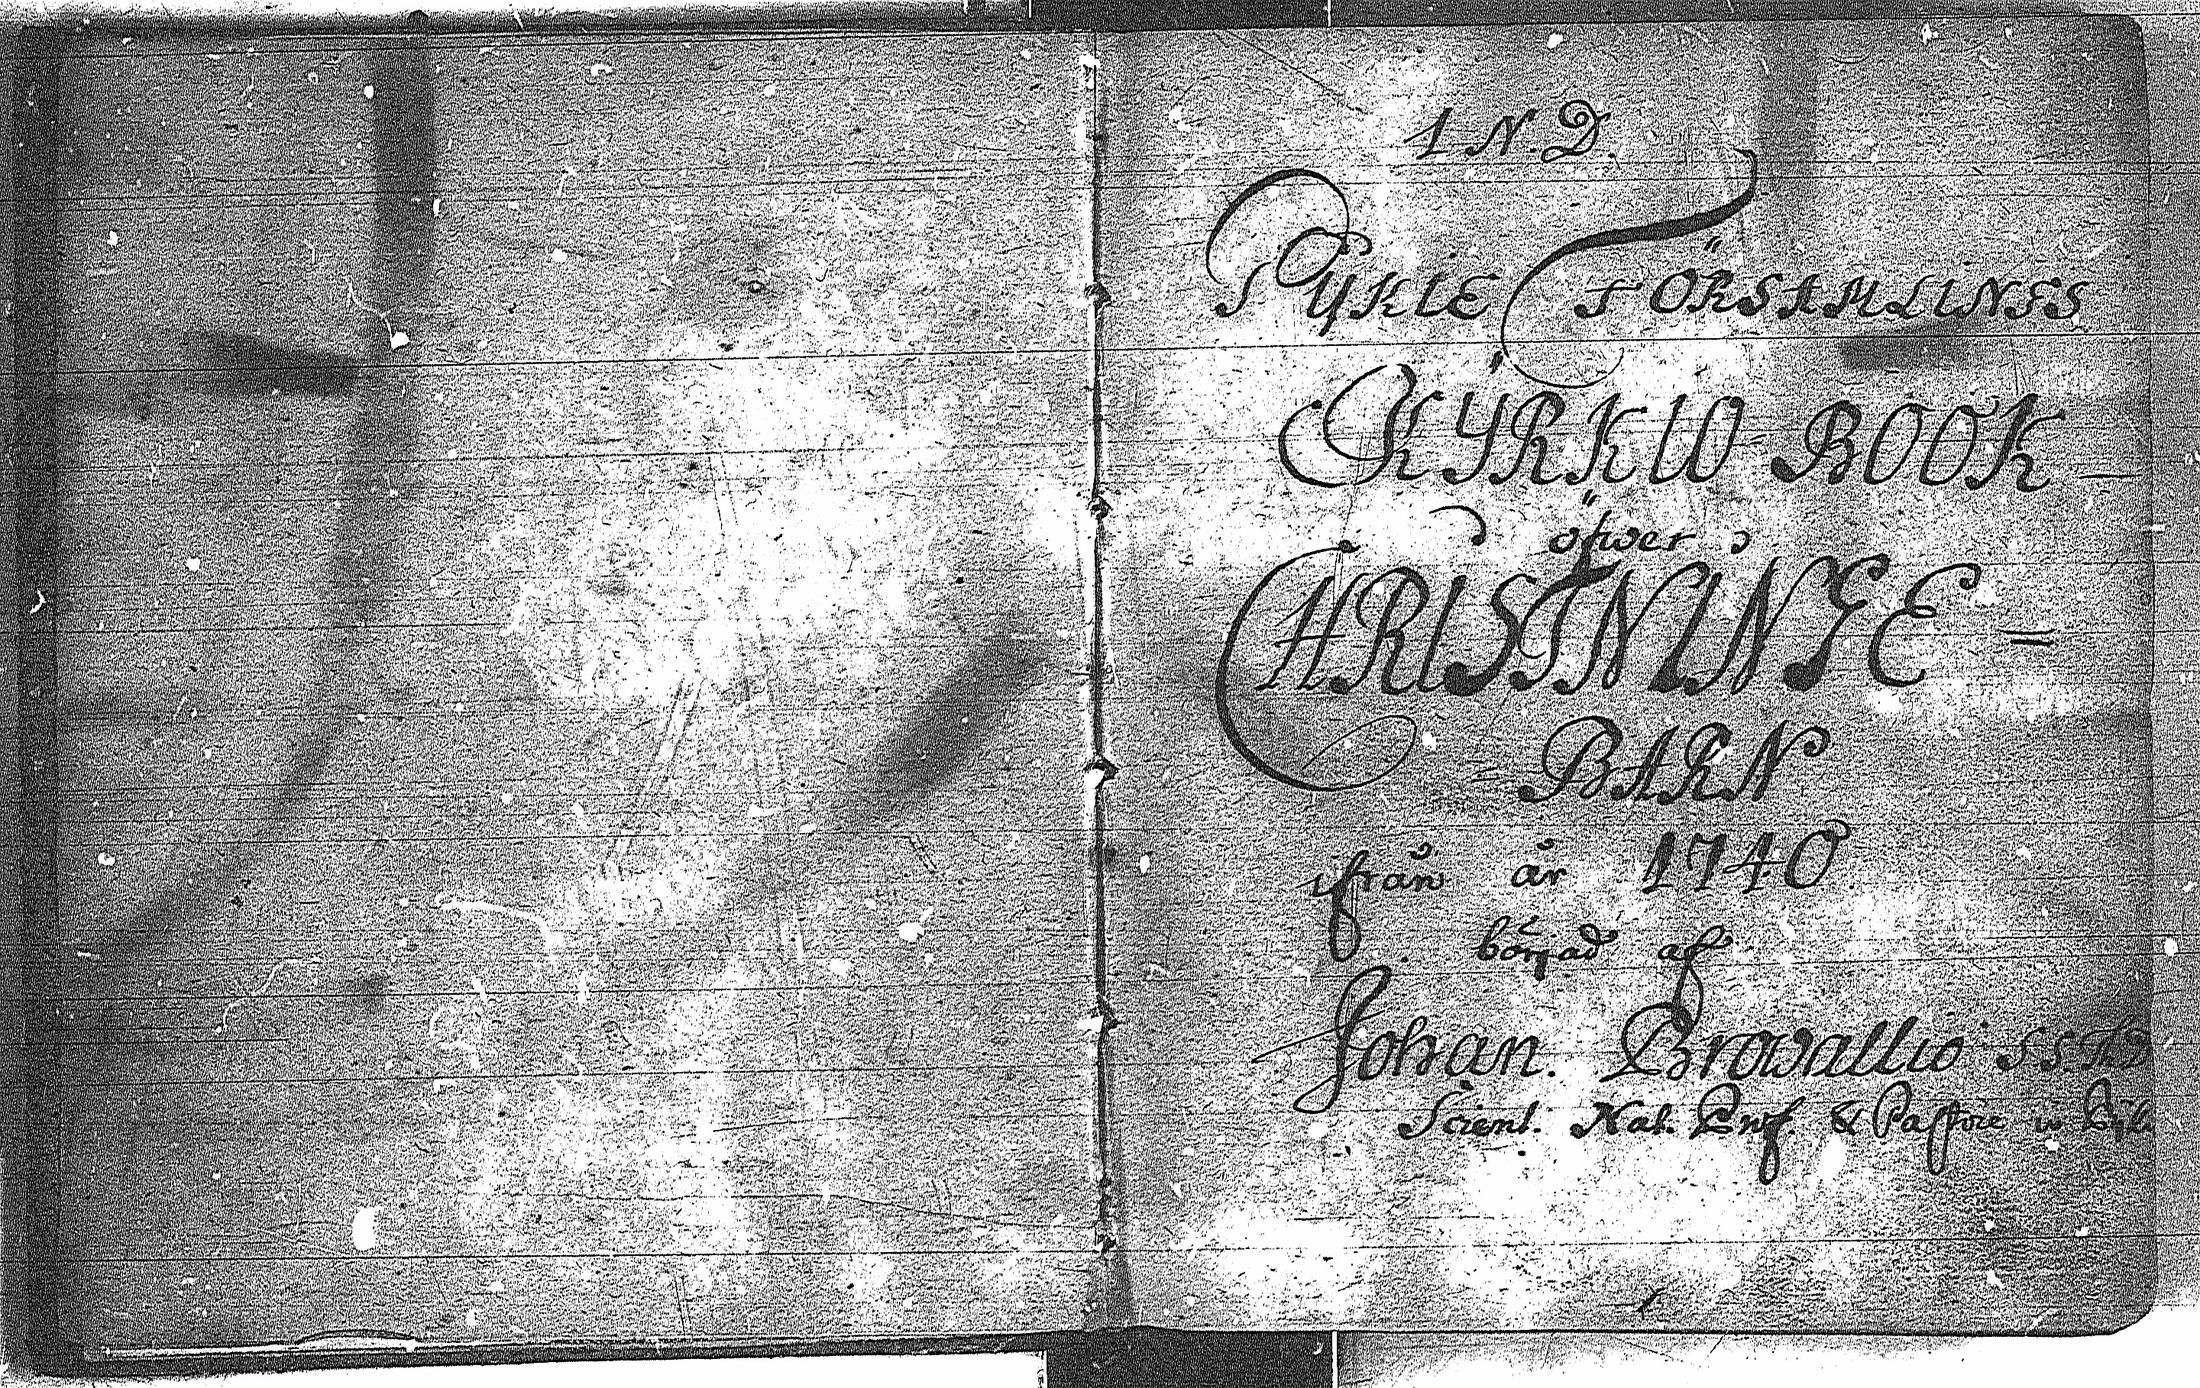 I N. D.
PŸKIE FÖRSAMLINGS
KYRKIO BOOK
öfwer
CHRISTNINGE =
BARN
ifrån år 1740
börjad af
Johan. Browallio S.S.T.D
Scient. Nat. Prof. & Pastore in